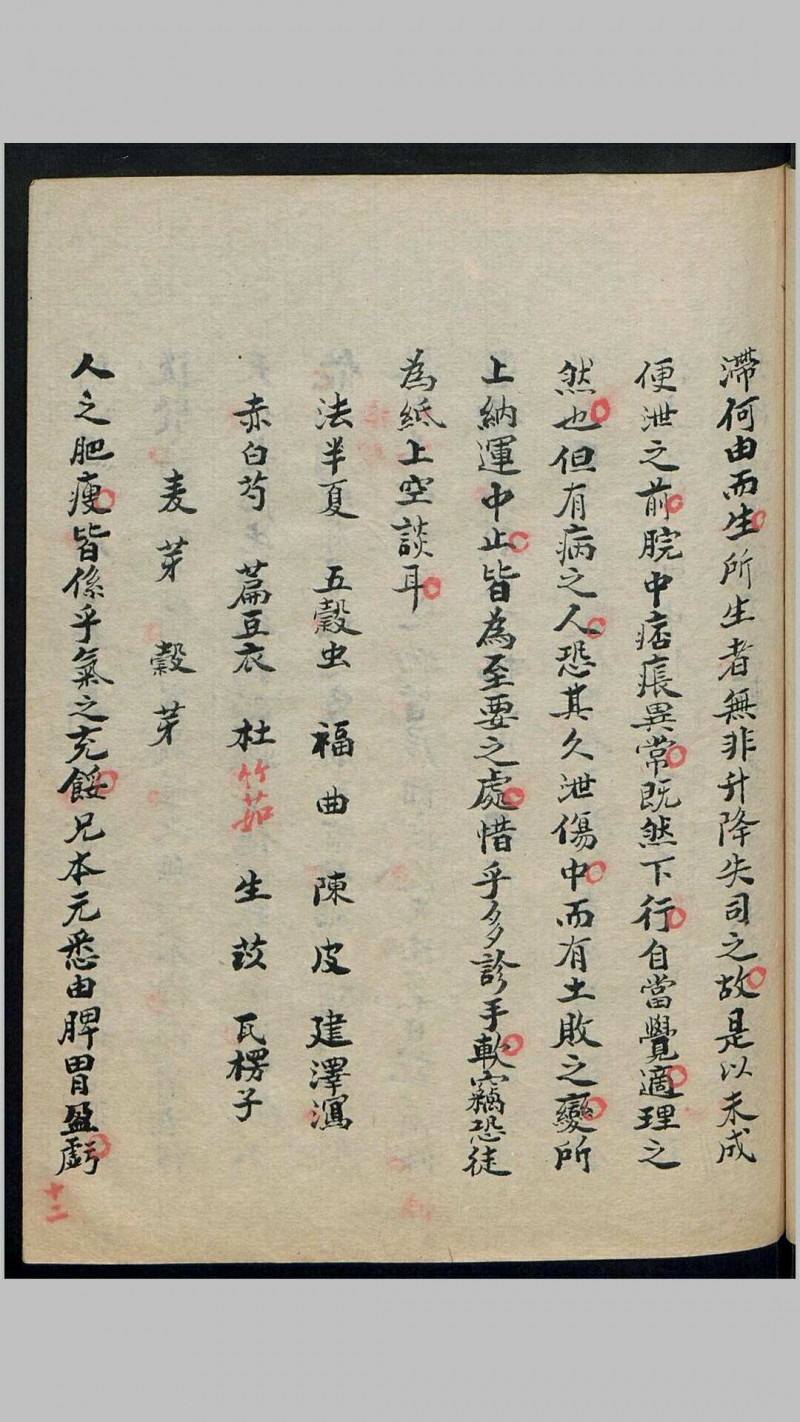 滯何由而生所生者無非升降失司之故是以未成
便泄之前脘中痞脹異常既然下行自當覺適理之
然也但有病之人恐其久泄傷中而有土敗之變所
上納運中止皆為至要之處惜乎多診手軟竊恐徒
為紙上空談耳
法半夏 五穀虫 福曲 陳皮 建澤瀉
赤白芍 萹豆衣 杜竹茹 生苡 瓦楞子
麦芽 穀芽
人之肥瘦皆係乎氣之充餒兄本元悉由脾胃盈虧
十二